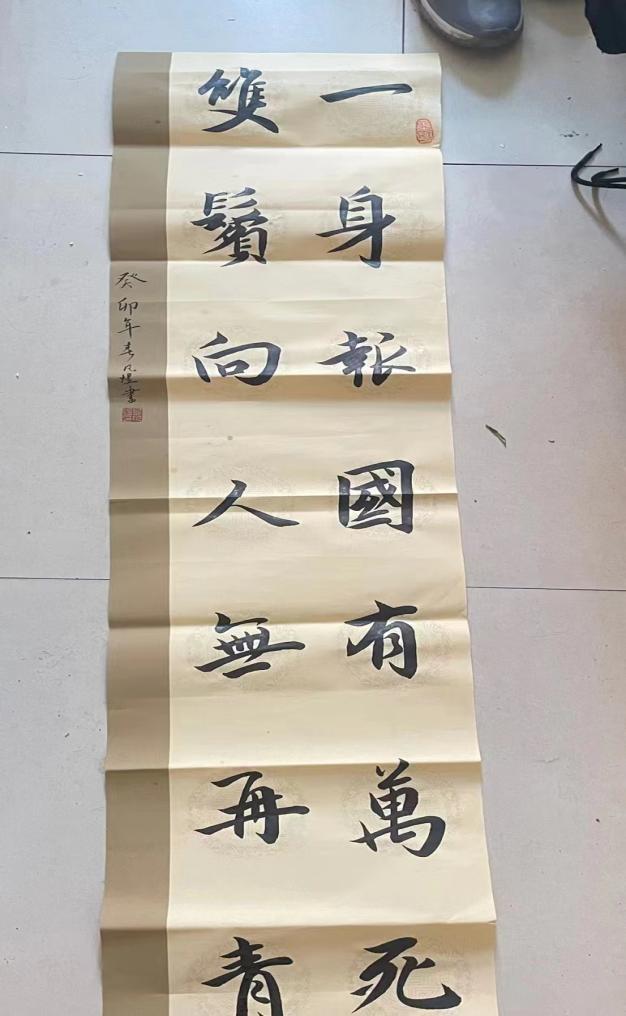 一身報國有萬死
雙鬢向人無再青
癸卯年春凡煜書